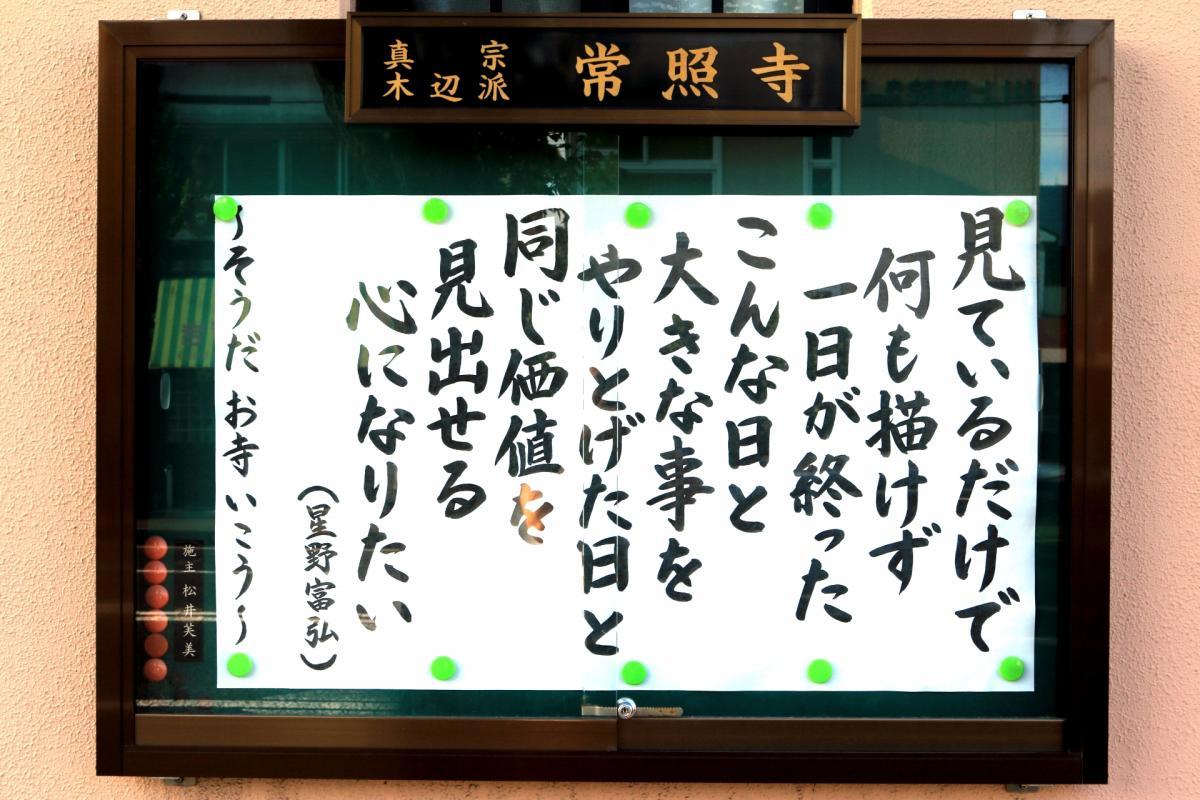 真宗
木辺派
常照寺
見ているだけで
何も描けず
一日が終った
こんな日と
大きな事を
やりとげた日と
同じ価値を
見出せる
心になりたい
(星野富弘)
~そうだ お寺 いこう~
施主 松井芙美